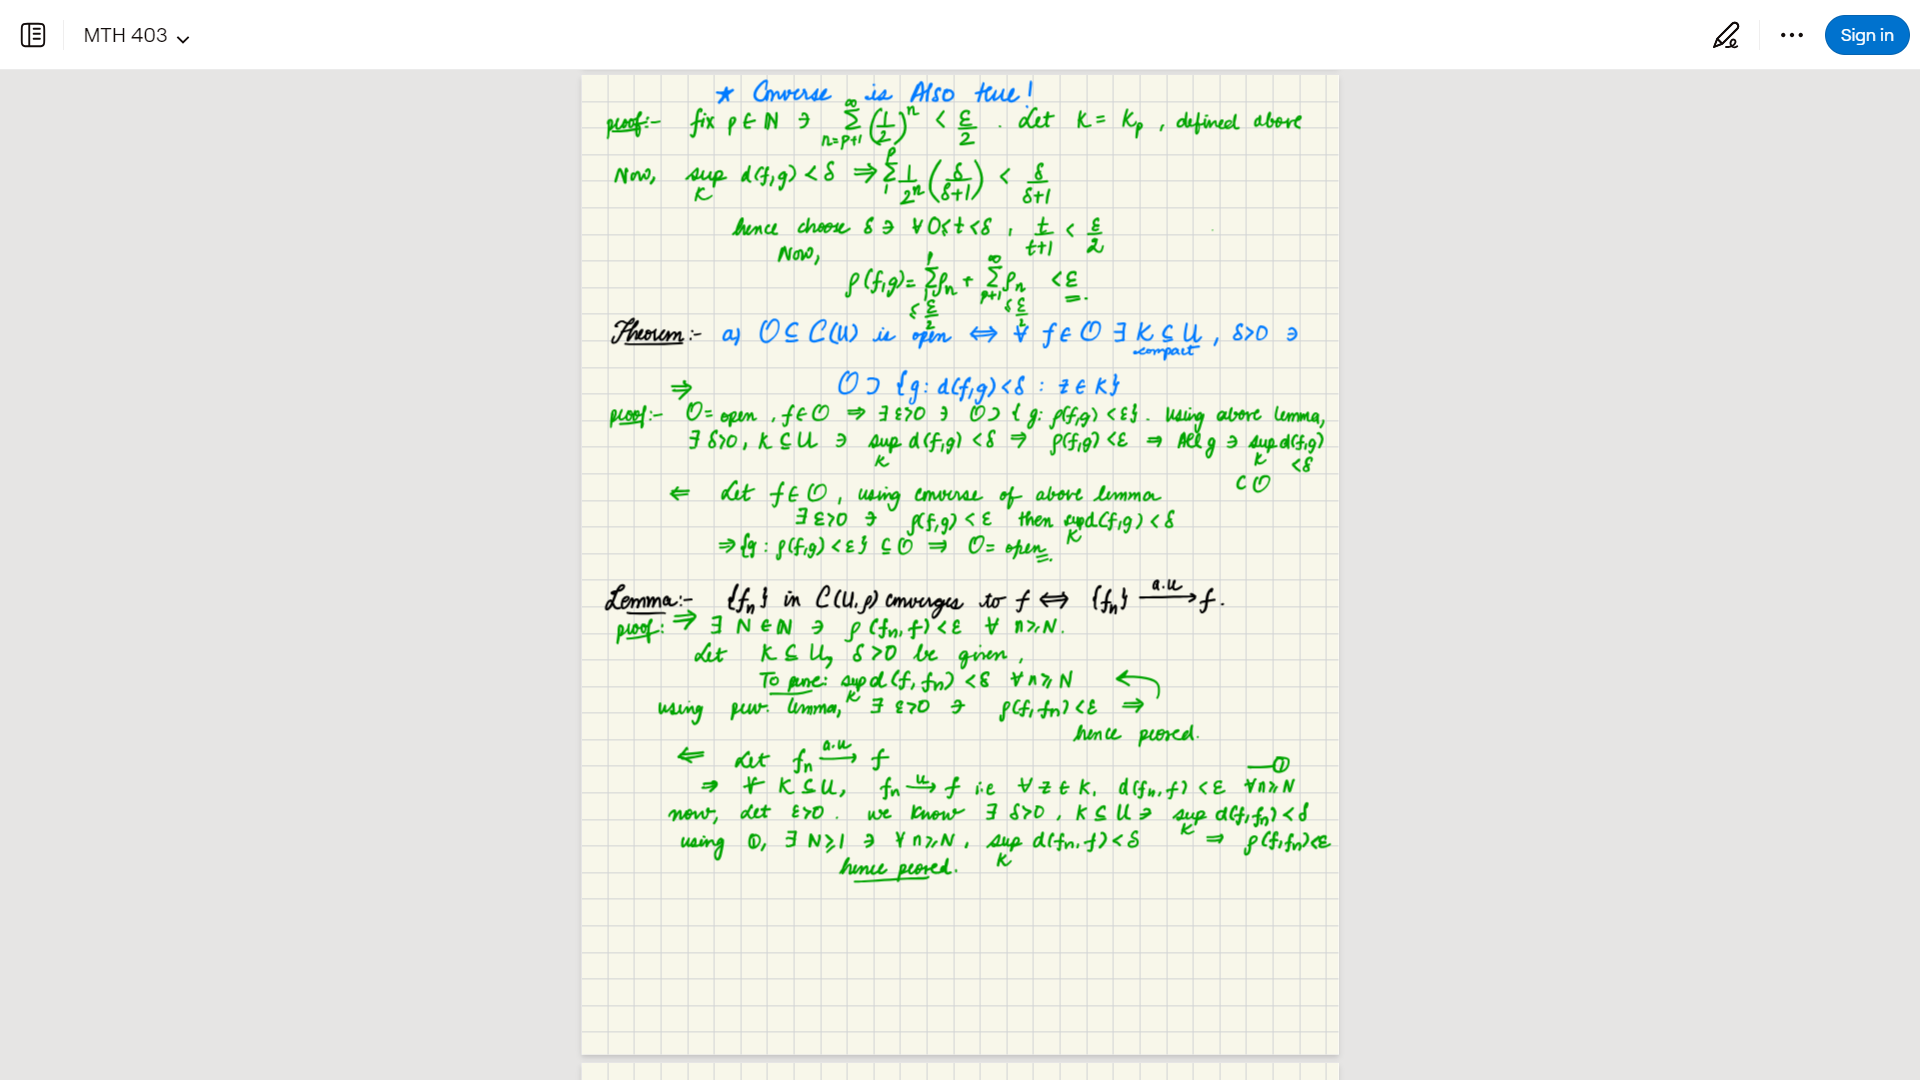 MTH 403
Sign in
★ Converse is Also true!
proof:- fix p ∈ ℕ ∋ ∑_{n=p+1}^{∞} (1/2)^n < ε/2 . Let K = K_p , defined above
Now, sup_K d(f,g) < δ ⇒ ∑_1^p 1/2^n (δ/(δ+1)) < δ/(δ+1)
hence choose δ ∋ ∀ 0≤t<δ , t/(t+1) < ε/2
Now,
ρ(f,g) = ∑_1^p ρ_n + ∑_{p+1}^∞ ρ_n < ε.
≤ ε/2 ≤ ε/2
Theorem:- a) O ⊆ C(U) is open ⇔ ∀ f ∈ O ∃ K ⊆ U , δ>0 ∋
compact
⇒ O ⊃ {g: d(f,g) < δ : z ∈ K}
proof:- O = open , f ∈ O ⇒ ∃ ε>0 ∋ O ⊃ { g: ρ(f,g) < ε} . Using above lemma,
∃ δ>0, K ⊆ U ∋ sup_K d(f,g) < δ ⇒ ρ(f,g) < ε ⇒ All g ∋ sup_K d(f,g)
< δ
⊂ O
⇐ Let f ∈ O , using converse of above lemma
∃ ε>0 ∋ ρ(f,g) < ε then sup_K d(f,g) < δ
⇒ {g : ρ(f,g) < ε} ⊆ O ⇒ O = open.
Lemma:- {f_n} in C(U,ρ) converges to f ⇔ {f_n} —a.u→ f.
proof: ⇒ ∃ N ∈ ℕ ∋ ρ(f_n, f) < ε ∀ n ≥ N.
Let K ⊆ U, δ > 0 be given,
To prove: sup_K d(f, f_n) < δ ∀ n ≥ N
using prev. lemma, ∃ ε>0 ∋ ρ(f, f_n) < ε ⇒
hence proved.
⇐ Let f_n —a.u→ f
—①
⇒ ∀ K ⊆ U, f_n —u→ f i.e ∀ z ∈ K, d(f_n, f) < ε ∀ n ≥ N
now, Let ε>0 . we know ∃ δ>0 , K ⊆ U ∋ sup_K d(f, f_n) < δ
using ①, ∃ N ≥ 1 ∋ ∀ n ≥ N, sup_K d(f_n, f) < δ ⇒ ρ(f, f_n) < ε
hence proved.